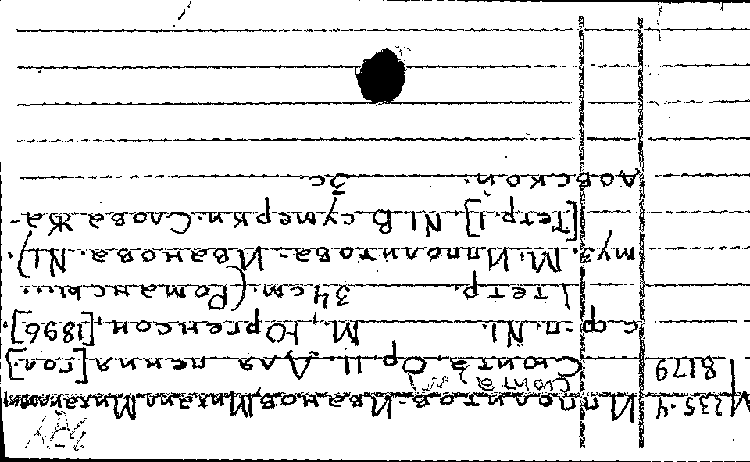 И 235-4 Ипполитов-Иванов, Михаил Михайлович
сюита
8179 Сюита, Op. 11. Для пения [гол.]
с ф-п. N1. М., Юргенсон, [1896].
1 тетр. 34 см. (Романсы...
муз. М. Ипполитова-Иванова. N1).
[Тетр. 1]. N1 В сумерки. Слова Жа-
довской. 3 с.